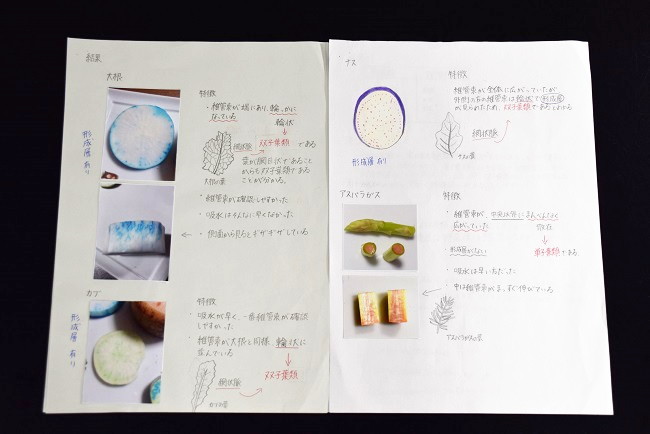 結果
大根
形成層 有り
特徴
・維管束が端にあり、輪っかに
なっている
輪状
網状脈
双子葉類 である
葉が網目状であること
からも双子葉類である
ことが分かる。
大根の葉
・維管束が確認しやすかった
・吸水はそんなに早くなかった
・側面から見るとギザギザしている
カブ
形成層 有り
特徴
・吸水が早く、一番維管束が確認
しやすかった
・維管束が大根と同様、輪状に
並んでいる
網状脈
双子葉類
カブの葉
ナス
特徴
維管束が全体に広がっていたが
外側の方の維管束は輪状で形成層
が見られたため、
網状脈
ナスの葉
形成層 有り
アスパラガス
特徴
・維管束が、
広がっていた
・形成層がない
単子葉類である
・吸水は早い方だった
・中は維管束がまっすぐ伸びている
アスパラガスの葉